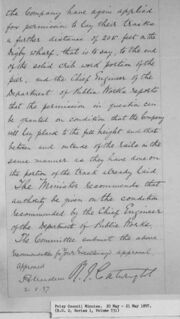 the Company have again applied
for permission to lay their tracks
a further distance of 205 feet on the
Rigby wharf, that is to say, to the end
of the solid crib work portion of the
pier, and the Chief Engineer of the
Department of Public Works reports
that the permission in question can
be granted on condition that the Company
will lay plank to the full height and that
between and outside of the rails in the
same manner as they have done on
the portion of the track already laid
The Minister recommends that
authority be given on the condition
recommended by the Chief Engineer
of the Department of Public Works.
The Committee submit the above
recommendation for Your Excellency's approval
approved
Aberdeen
R. J. Cartwright
2.6.97
Privy Council Minutes, 20 May - 21 May 1897.
(R.G. 2, Series 1, Volume 731)